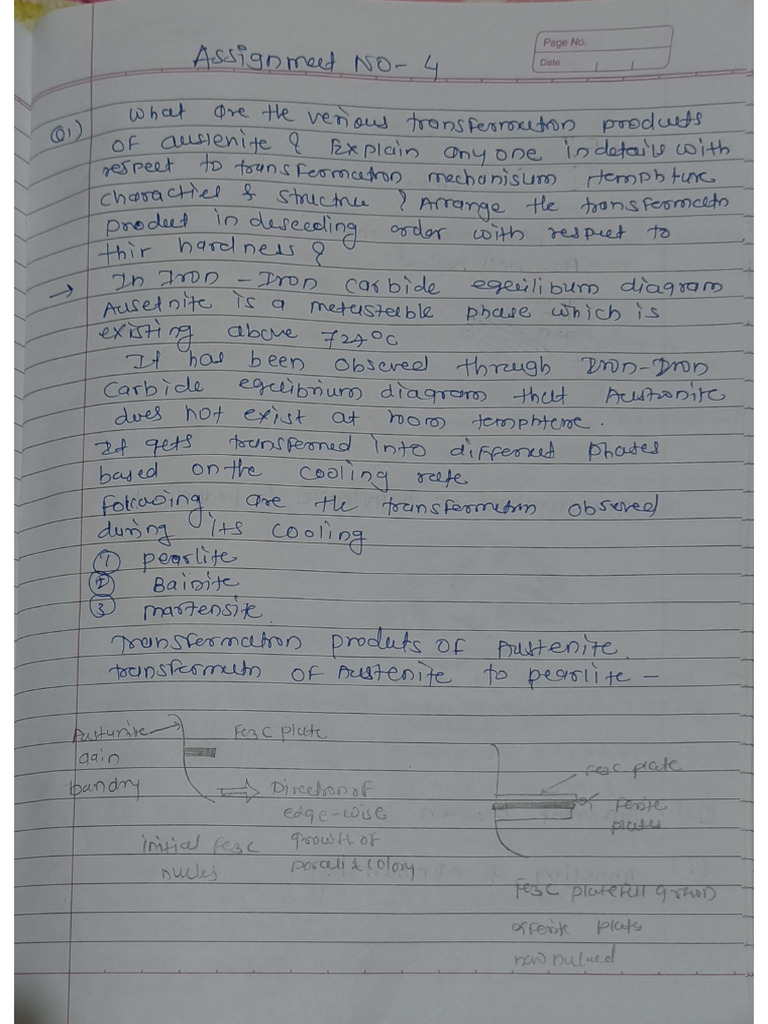 Assignment NO - 4
Page No.
Date
Q1) What are the verious transformation products
of austenite ? Explain any one in details with
respect to transformation mechanisium temphture
characties & structrue ? Arrange the transformetn
product in deseeding order with respect to
thir hardness ?
→ In Iron - Iron carbide eqeilibum diagram
Ausetnite is a metasteable phase which is
existing above 727°C
It has been obsered through Iron-Iron
carbide eqelibrium diagram that Austonite
does not exist at room temphtere.
It gets transferned into differnet phates
based on the cooling rate
following are the transformetion obsered
during its cooling
① pearlite
② Bainite
③ martensite.
Transfermation produts of Austenite.
transfermetn of Austenite to pearlite -
Austunite
gain
bandry
Fe3C plate
⇒ Direction of
edge-wise
growth of
parcalit colony
initial Fe3C
nucles
Fe3C plate
ferite
plates
Fe3C plate full grown
& ferite plate
now nulued